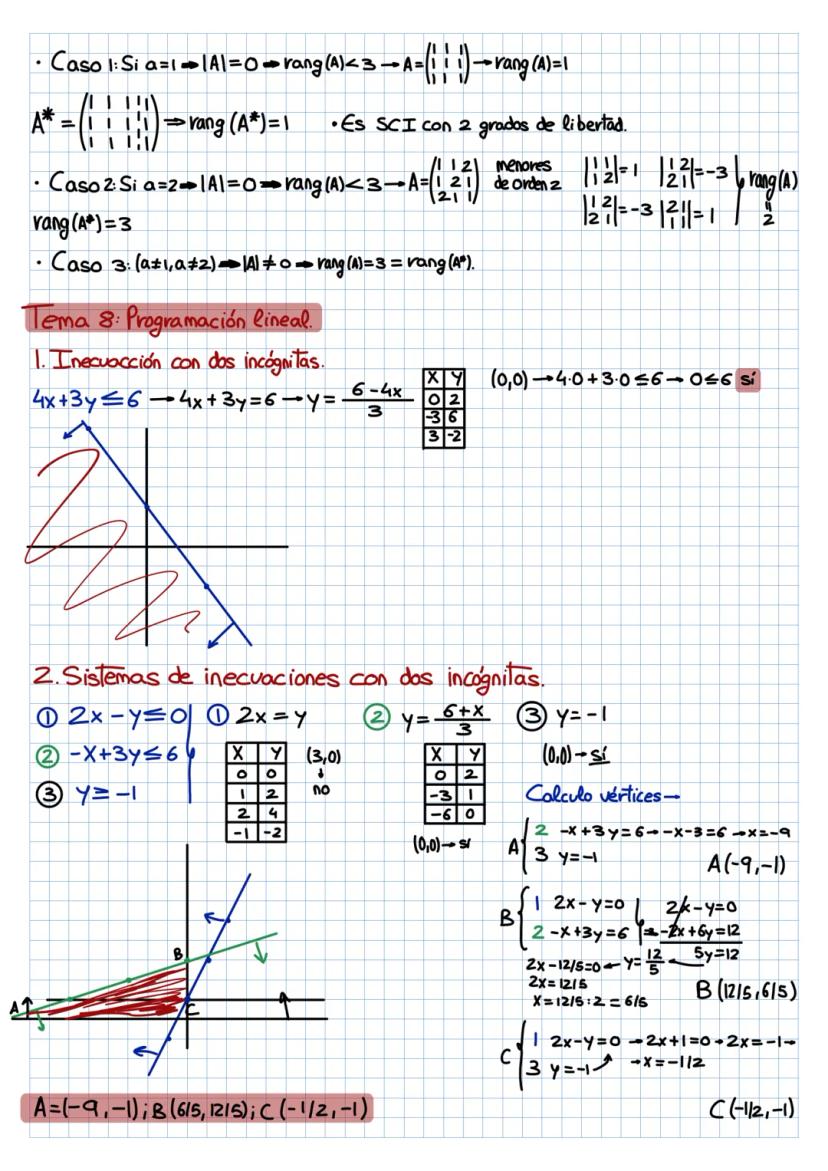 · Caso 1: Si a=1 ➡ |A|=0 ➡ rang(A)<3 → A=(1 1 1 / 1 1 1 / 1 1 1) → rang(A)=1
A* = (1 1 1 | 1 / 1 1 1 | 1 / 1 1 1 | 1) ⇒ rang(A*)=1 · Es SCI con 2 grados de libertad.
· Caso 2: Si a=2 → |A|=0 ➡ rang(A)<3 → A=(1 1 2 / 1 2 1 / 2 1 1) menores de orden 2 |1 1 / 1 2|=1 |1 2 / 2 1|=-3 rang(A)
rang(A*)=3 |1 2 / 2 1|=-3 |2 1 / 1 1|=1 = 2
· Caso 3: (a≠1, a≠2) ➡ |A|≠0 ➡ rang(A)=3=rang(A*).
Tema 8: Programación lineal.
1. Inecuacción con dos incógnitas.
4x+3y≤6 → 4x+3y=6 → y = (6-4x)/3
X Y
0 2
-3 6
3 -2
(0,0) → 4·0+3·0≤6 → 0≤6 sí
2. Sistemas de inecuaciones con dos incógnitas.
① 2x-y≤0
② -x+3y≤6
③ y≥-1
① 2x=y
X Y
0 0
1 2
2 4
-1 -2
(3,0)
↓
no
② y = (6+x)/3
X Y
0 2
-3 1
-6 0
(0,0) → sí
③ y=-1
(0,0) → sí
Calculo vértices →
A { 2 -x+3y=6 → -x-3=6 → x=-9
3 y=-1
A(-9,-1)
B { 1 2x-y=0 2x-y=0
2 -x+3y=6 -2x+6y=12
5y=12
2x-12/5=0 ← y=12/5 ←
2x=12/5
x=12/5:2=6/5
B(12/5,6/5)
C { 1 2x-y=0 → 2x+1=0 → 2x=-1 →
3 y=-1 → x=-1/2
C(-1/2,-1)
A
B
C
A=(-9,-1); B(6/5,12/5); C(-1/2,-1)